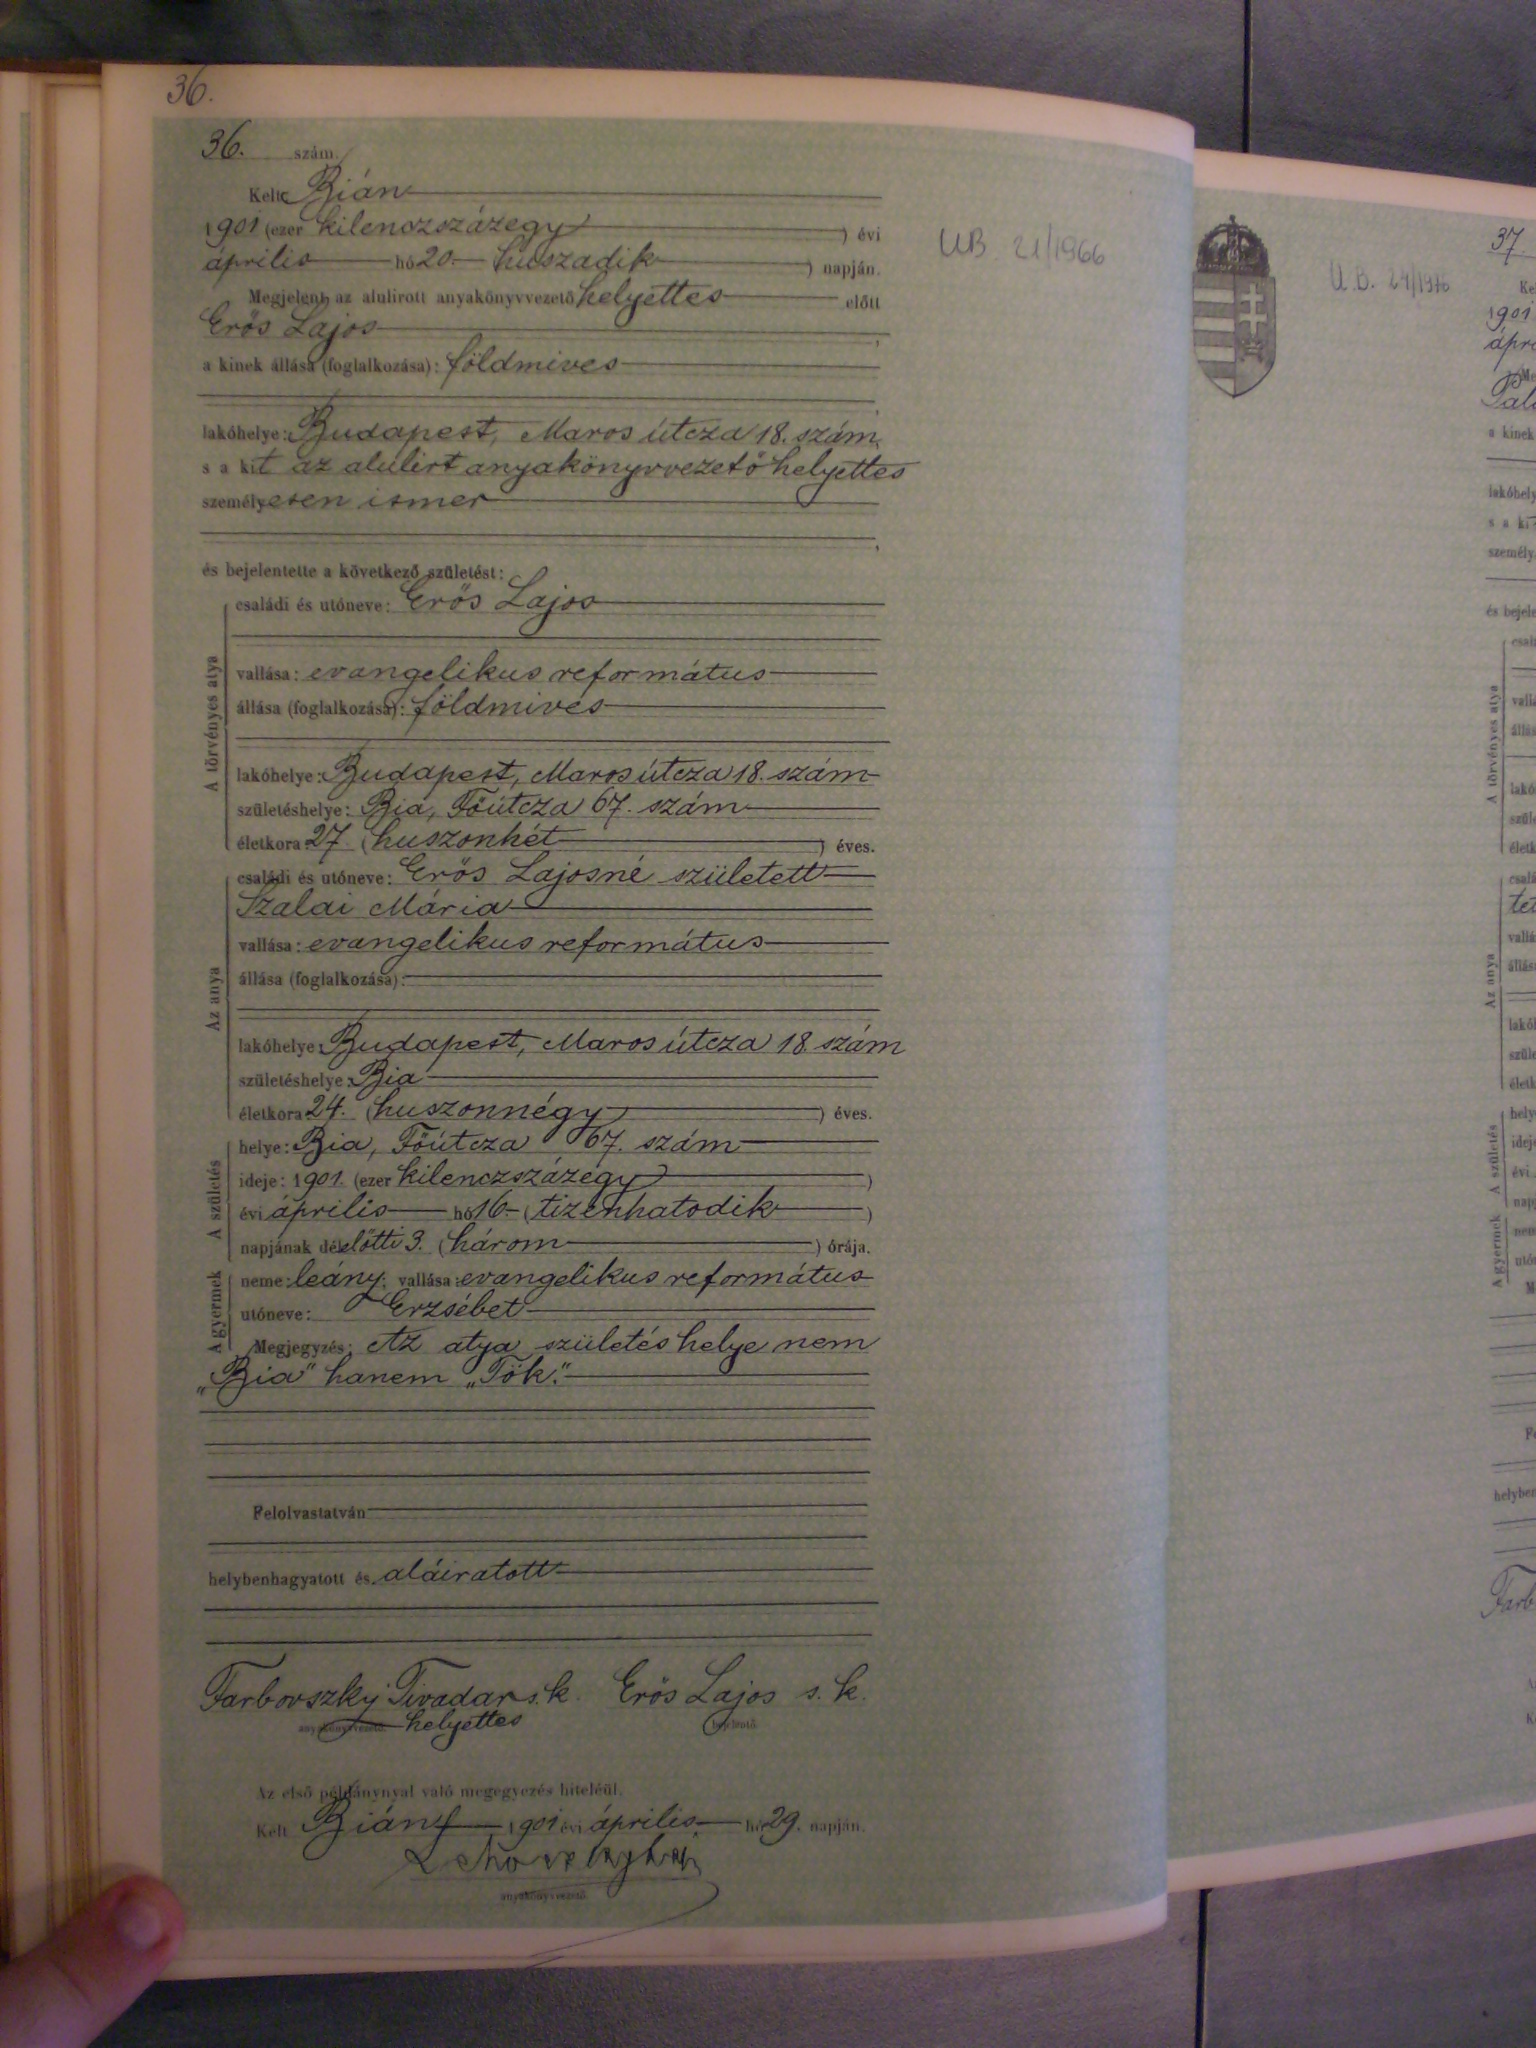 36.
36. szám.
Kelt Bián
1901 (ezer kilenczszázegy) évi
április hó 20. huszadik) napján.
Megjelent az alulirott anyakönyvvezető helyettes előtt
Erős Lajos,
a kinek állása (foglalkozása): földmives
lakóhelye: Budapest, Maros útcza 18. szám,
s a kit az alúlirt anyakönyvvezető helyettes
személyesen ismer,
és bejelentette a következő születést:
A törvényes atya
családi és utóneve: Erős Lajos
vallása: evangelikus református
állása (foglalkozása): földmivés
lakóhelye: Budapest, Maros útcza 18. szám
születéshelye: Bia, Főútcza 67. szám
életkora 27. (huszonhét) éves.
Az anya
családi és utóneve: Erős Lajosné született
Szalai Mária
vallása: evangelikus református
állása (foglalkozása):
lakóhelye: Budapest, Maros útcza 18. szám
születéshelye: Bia
életkora 24. (huszonnégy) éves.
A születés
helye: Bia, Főútcza 67. szám
ideje: 1901. (ezer kilenczszázegy)
évi április hó 16. (tizenhatodik)
napjának délelőtti 3. (három) órája.
A gyermek
neme: leány; vallása: evangelikus református
utóneve: Erzsébet
Megjegyzés: Az atya születés helye nem
„Bia" hanem „Tök".
Felolvastatván
helybenhagyatott és aláiratott
Farbovszky Tivadar s. k. Erős Lajos s. k.
anyakönyvvezető helyettes bejelentő
Az első példánynyal való megegyezés hiteléül.
Kelt Bián 1901 évi április hó 29. napján.
anyakönyvvezető
UB. 21/1966
U.B. 24/1976
37.
1901